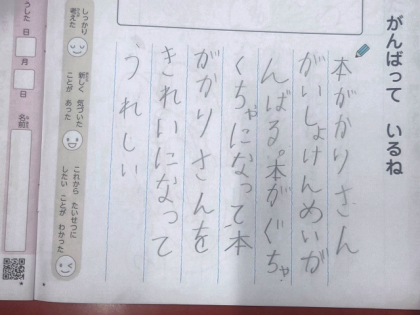 がんばって いるね
本がかりさん
がいしょけんめいが
んばる。本がぐちゃ
くちゃになって、本
がかりさんを
きれいになって
うれしい
しっかり考えた
かんが
新しく 気づいた ことが あった
あたら
これから たいせつに したい ことが わかった
うした日
月
日
名前
なまえ